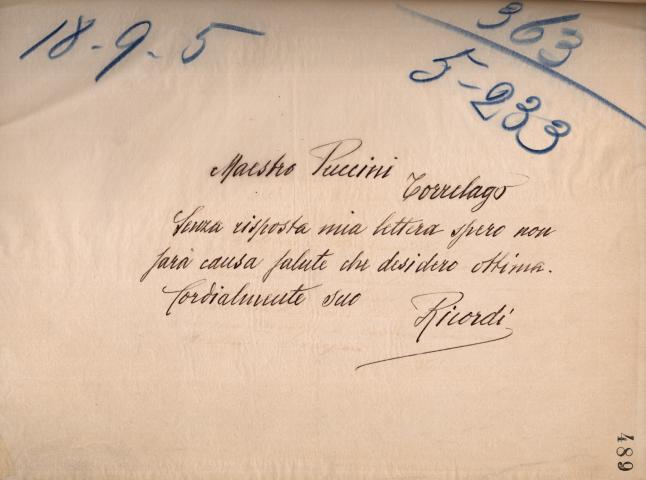 18-9-5
363
5-233
Maestro Puccini
Torrelago
Senza risposta mia lettera spero non
sarà causa salute che desidero ottima.
Cordialmente suo
Ricordi
489